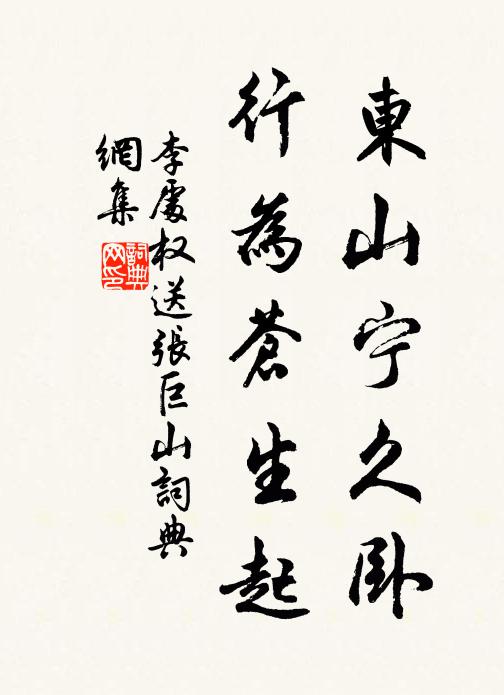 東山宁久卧
行為蒼生起
李處权送張巨山詞典
網集
詞典
网印